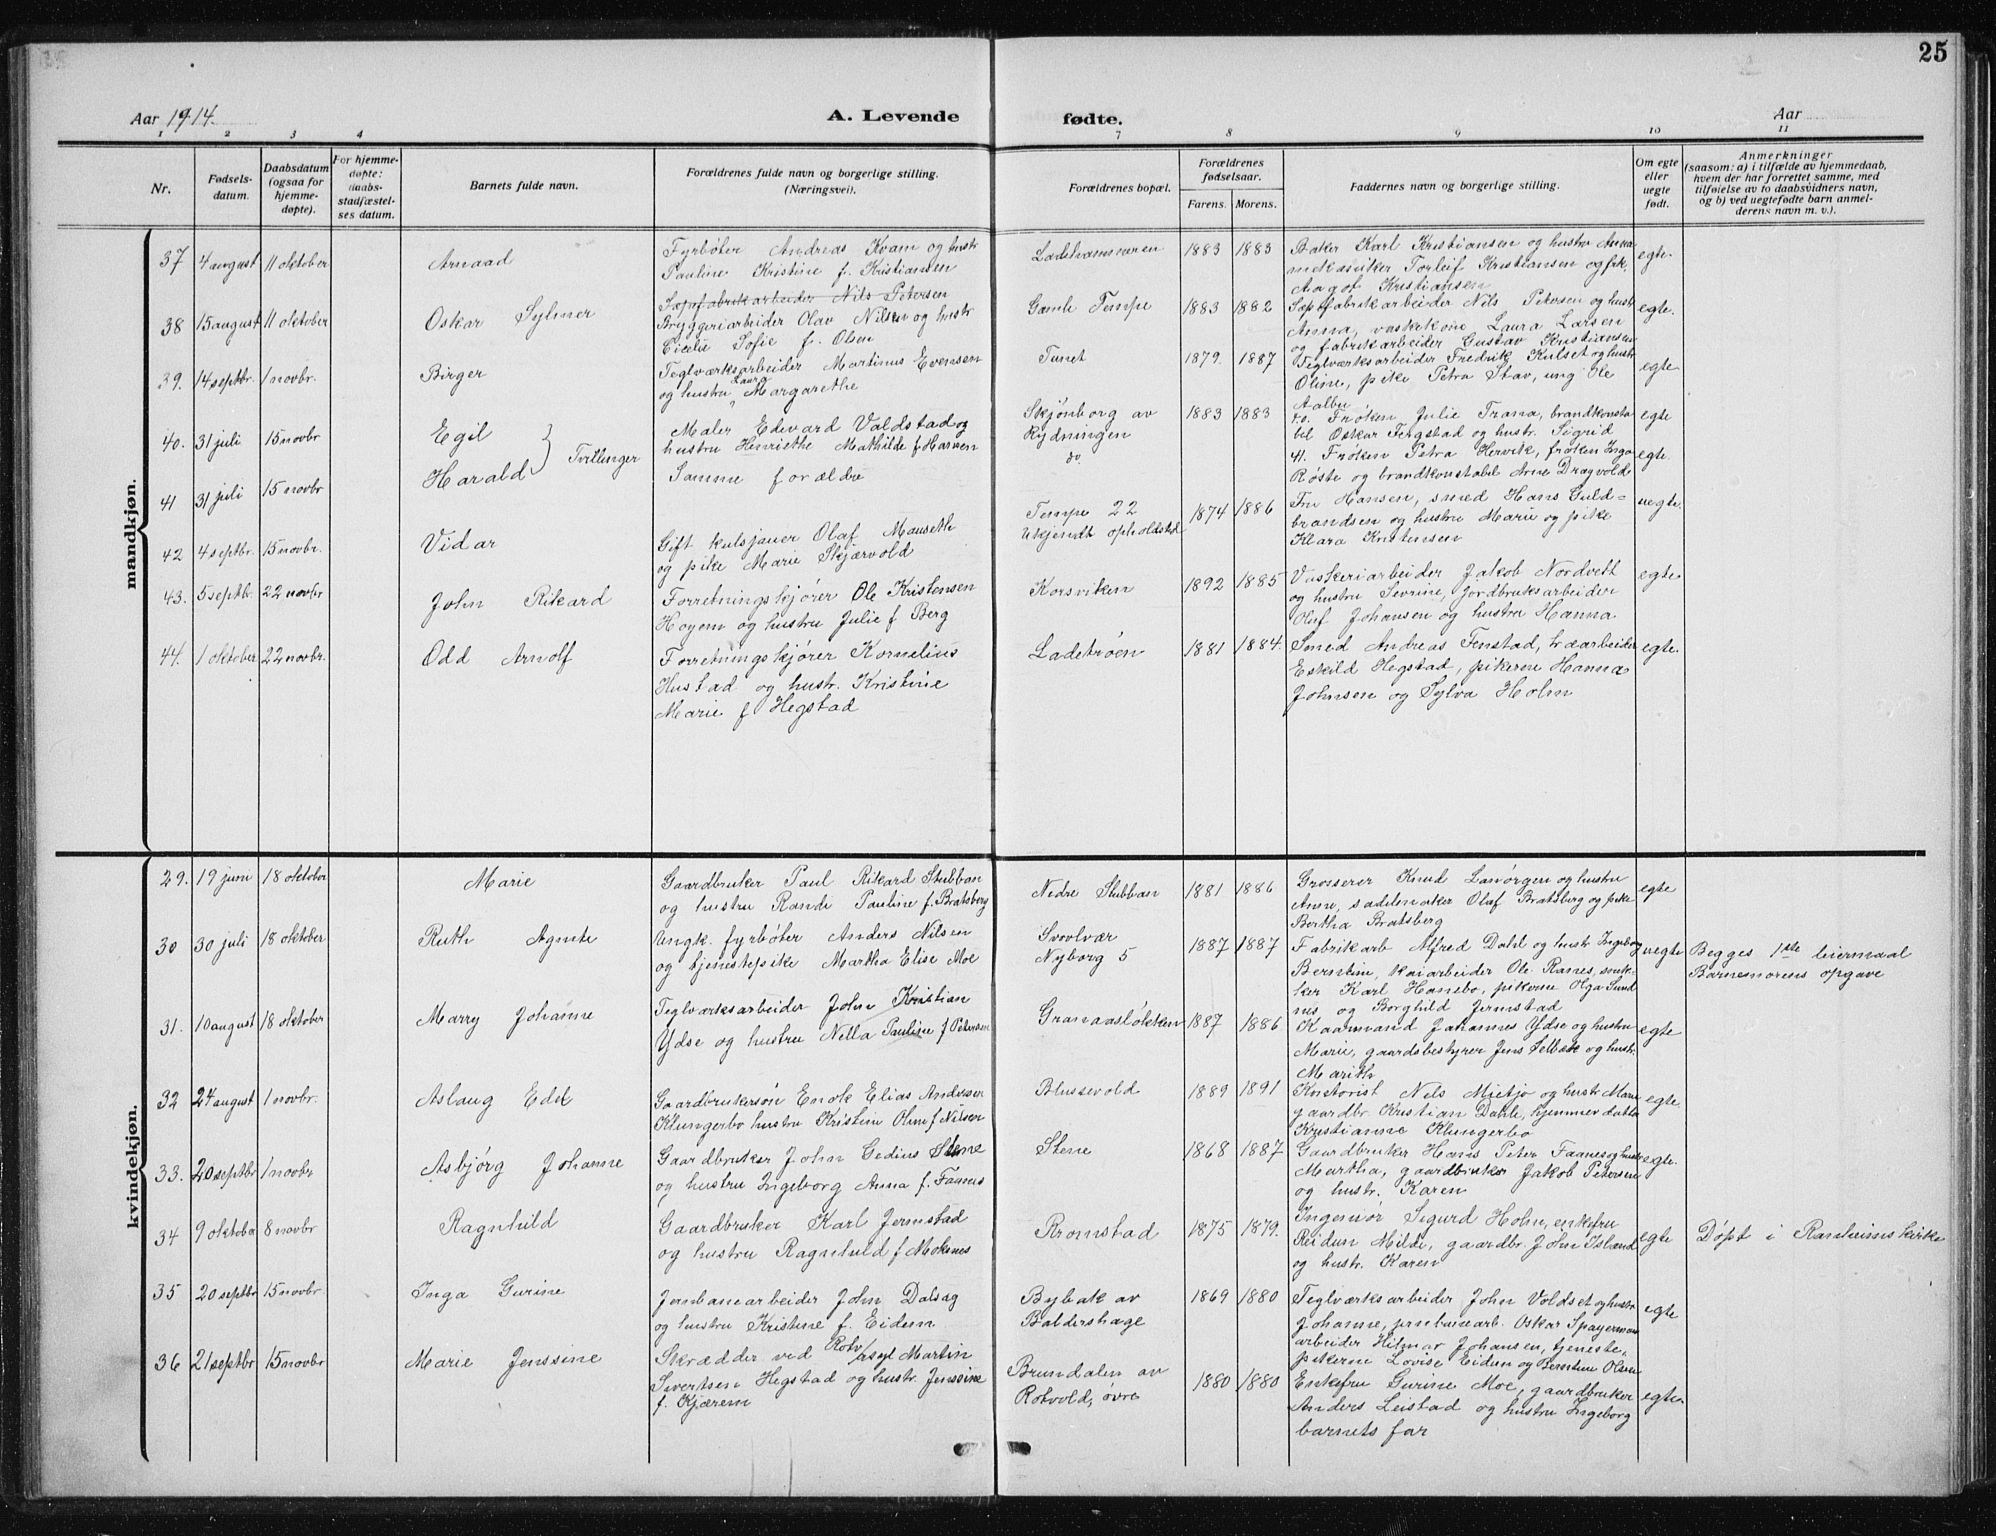 25
Aar 1914. A. Levende fødte. Aar
1 2 3 4 7 8 9 10 11
Nr.
Fødsels-
datum.
Daabsdatum
(ogsaa for
hjemme-
døpte).
For hjemme-
døpte:
daabs-
stadfæstel-
ses datum.
Barnets fulde navn.
Forældrenes fulde navn og borgerlige stilling.
(Næringsvei).
Forældrenes bopæl.
Forældrenes
fødselsaar.
Farens. Morens.
Faddernes navn og borgerlige stilling.
Om egte
eller
uegte
født.
Anmerkninger
(saasom: a) i tilfælde av hjemmedaab,
hvem der har forrettet samme, med
tilføielse av to daabsvidners navn,
og b) ved uegtefødte barn anmel-
derens navn m. v.).
mandkjøn.
37 4 august 11 oktober Arnaad
Fyrbøter Andreas Kvam og hustr
Pauline Kristine f. Kristiansen
Ladehammeren 1883 1883
Baker Karl Kristiansen og hustru Anna
Torleif Kristiansen og frk.
Aagot Kristiansen
egte.
38 15 august 11 oktober Oskar Sylmer
Sæpefabrikarbeider Nils Petersen
Bryggeriarbeider Olav Nilsen og hustr
Sofie f. Olsen
Gamle Tempe 1883 1882
Sæpefabrikarbeider Nils Petersen og hustr
Anna, vaskekone Laura Larsen
og fabrikarbeider Gustav Kristiansen
egte.
39. 14 septbr. 1 novbr. Birger
Teglværksarbeider Martinus Evensen
og hustru Laura Margarethe
Tunet 1879. 1887
Teglværksarbeider Fredrik Kulset og hustr
Oline, pike Petra Stav, ung Ole
Aalbu
egte
40. 31 juli 15 novbr Egil } Tvillinger
Maler Edvard Valdstad og
hustru Henriethe Mathilde f Hansen
Skjønborg av
Rydningen
1883 1883
40. Frøken Julie Trana, brandkonsta
bel Oskar Fergstad og hustr. Sigrid
egte
41 31 juli 15 novbr Harald
Samme forældre
do
41. Frøken Petra Hervik, frøken Inga
Røste og brandkonstabel Arne Dragvold
egte.
42 4 septbr. 15 novbr. Vidar
Gift kulsjauer Olaf Mauseth
og pike Marie Skjærvold
Tempe 22
Ukjendt opholdsted
1874 1886
Fru Hansen, smed Hans Guld=
brandsen og hustru Marie og pike
Klara Knutensen
uegte.
43. 5 septbr. 22 novbr John Rikard
Forretningskjører Ole Kristensen
Hoyem og hustru Julie f Berg
Korsviken 1892 1885
Vaskeriarbeider Jakob Nordvett
og hustru Sevrine, jordbruksarbeider
Oluf Johansen og hustru Hanna
egte.
44. 1 oktober 22 novbr. Odd Arnolf
Forretningskjører Kornelius
Hustad og hustr. Kristine
Marie f Hegstad
Ladetrøen 1881 1884.
Smed Andreas Fenstad, træarbeider
Eskild Hegstad, pikerne Hanna
Johnsen og Sylva Holm
egte.
kvindekjøn.
29. 19 juni 18 oktober Marie
Gaardbruker Paul Rikard Stubban
og hustru Randi Pauline f. Bratsberg
Nedre Stubban 1881 1886
Grosserer Knud Lanørgen og hustru
Anne, sadelmaker Olaf Bratsberg og pike
Bertha Bratsberg
egte
30 30 juli 18 oktober Ruth Agnete
Ungk. fyrbøter Anders Nilsen
og tjenestepike Martha Elise Moe
Svolvær
Nyborg 5
1887 1887
Fabrikarb Alfred Dahl og hustr Ingeborg
Berntine, kaiarbeider Ole Ranes, snek-
ker Karl Hanebo, pikerne Olga Sund
nes og Borghild Jermstad
uegte
Begges 1ste leiermaal
Barnemorens opgave
31. 10 august 18 oktober Marry Johanne
Teglværksarbeider John Kristian
Ydse og hustru Nella Pauline f Petersen
Granaasløkken 1887 1886
Kaarmand Johannes Ydse og hustru
Marie, gaardsbestyrer Jens Selbæk og hustr.
Marith
egte
32 24 august 1 novbr. Aslaug Edel
Gaardbrukersøn Enok Elias Andersen
Klungerbo hustru Kristine Oline f Nilsen
Blussevold 1889 1891
Kontorist Nels Mietjo og hustr Marie
gaardbr. Kristian Dahle, hjemmev datter
Kristianne Klungerbo
egte.
33. 20 septbr 1 novbr Asbjørg Johanne
Gaardbruker John Gedius Stene
og hustru Ingeborg Anna f. Faanes
Stene 1868 1887
Gaardbruker Hans Peter Faanes og hustr
Martha, gaardbruker Jakob Petersen
og hustr. Karen
egte.
34 9 oktober 8 novbr Ragnhild
Gaardbruker Karl Jermstad
og hustru Ragnhild f Moksnes
Romstad 1875 1879.
Ingeniør Sigurd Holm, enkefru
Reidun Milde, gaardbr. John Island
og hustr. Karen
egte
Døpt i Ranheims kirke
35 20 septbr 15 novbr. Inga Gurine
Jernbanearbeider John Dalsag
og hustru Kristine f. Eidem
Bybak av
Baldershage
1869 1880
Teglværksarbeider John Voldset og hustr
Johanne, Oskar Spayerman
arbeider Hilmar Johansen, tjeneste=
pikerne Lovise Eidem og Berntine Olsen
egte
36 21 septbr 15 novbr Marie Jenssine
Skrædder ved Rotv. asyl Martin
Sivertsen Hegstad og hustr. Jenssine
f. Kjærem
Brundalen av
Rotvold, øvre
1880 1880
Enkefru Gurine Moe, gaardbruker
Anders Leistad og hustru Ingeborg
barnets far
egte.